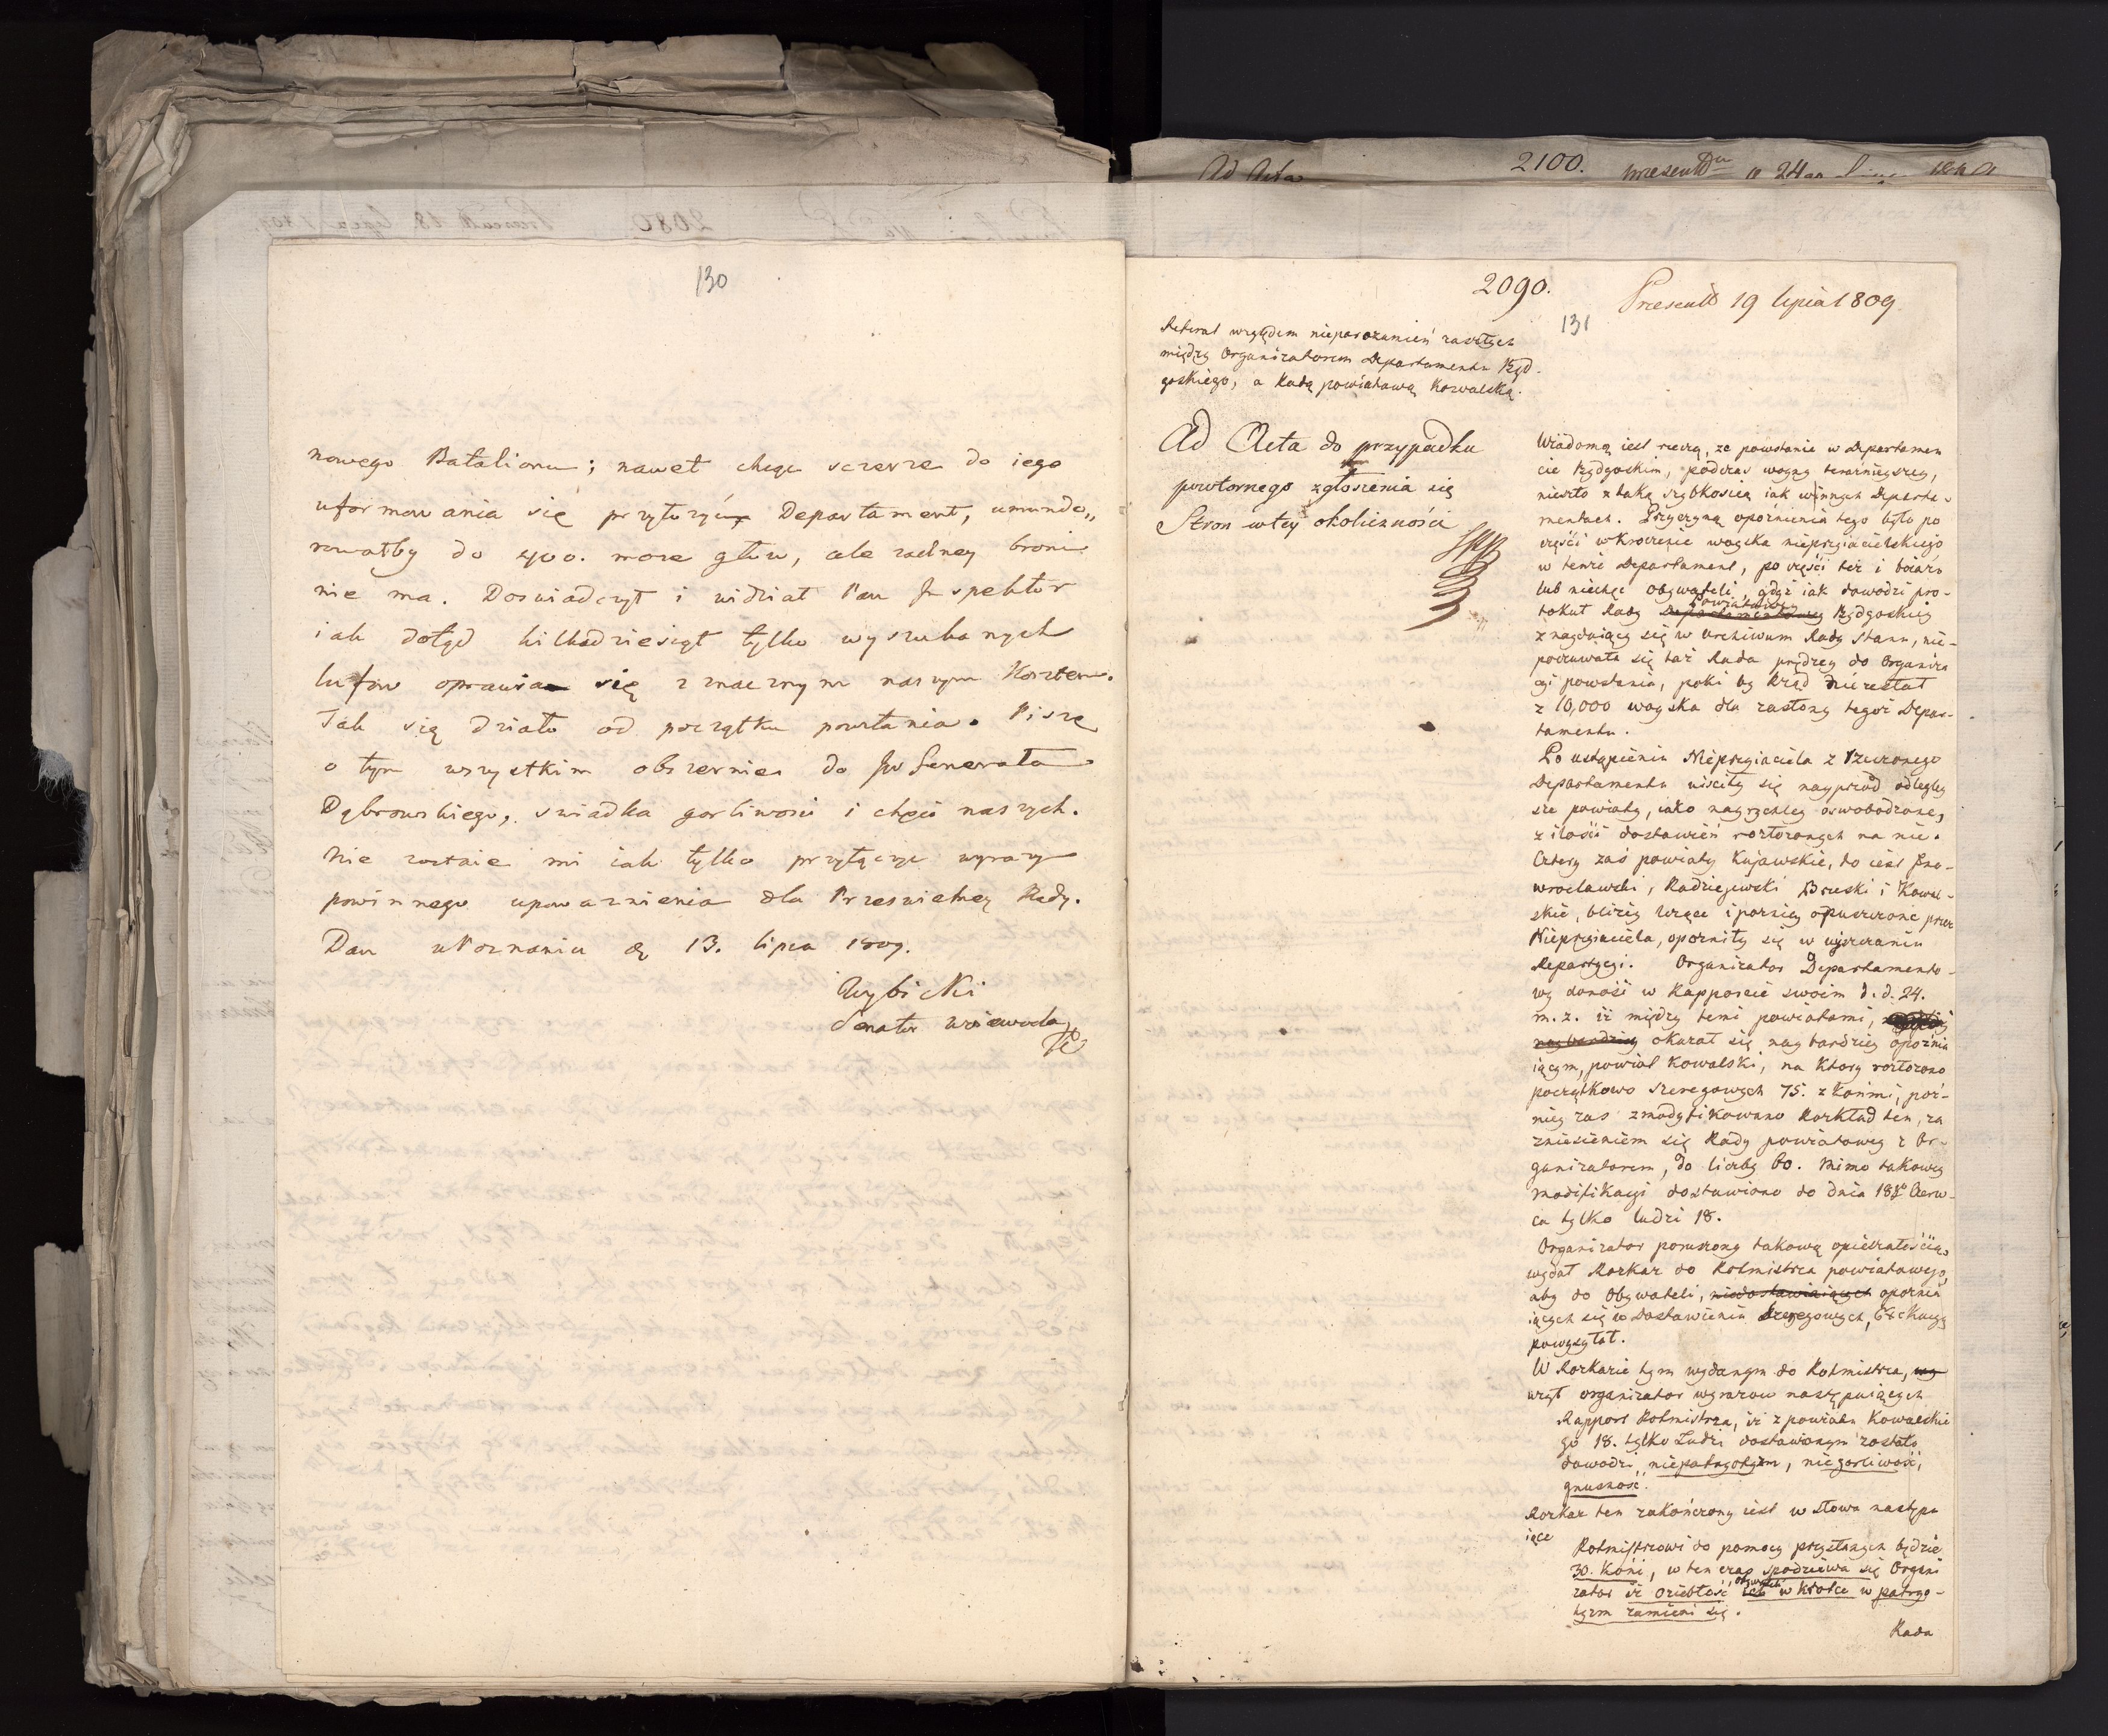 130
nowego Batalionu; nawet chcąc szczerze do iego
uformowania się przyłożyć Departament, umundo„
rowałby do 400. może głów, ale żadney broni
nie ma. Doswiadczył i widział Pan Inspektor
iak dotąd kilkadziesiąt tylko wyszukanych
lufów oprawia się z znacznym naszym Kosztem.
Tak się działo od początku powstania. Piszę
o tym wszystkim obszerniey do JW Generała
Dąbrowskiego, swiadka gorliwosci i chęci naszych.
Nie zostaie mi iak tylko przyłączyć wyrazy
powinnego uPoważnienia dla Prześwietney Rady.
Dan w Poznaniu dq 13. lipca 1809.
Wybicki
Senator Woiewoda
Ad Acta 2100. presentDu d 24go
2090.
Presentt 19 lipca 1809
131
Referat względem nieporozumień zaszłych
między Organizatorem Departamentu Bydgo-
goskiego, a Radą powiatową Kowalską.
Ad Acta do przypadku
powtornego zgłoszenia się
Stron w tey okoliczności
Wiadomą iest rzeczą, że powstanie w Departamen
cie Bydgoskim, podczas woyny teraźnieyszey,
nieszło z taką szybkością iak w innych Departa-
mentach. Przyczyną opóźnienia tego było po
części wkroczenie woyska nieprzyiacielskiego
w tenże Departament, po części też i boiaźń
lub niechęć obywateli, gdyż iak dowodzi pro-
tokuł Rady Departamentowey Powiatowey Bydgoskiey
znayduiący się w Archiwum Rady Stanu, nie-
poczuwała się taż Rada prędzey do organiza
cyi powstania, poki by Rząd nie zesłał
z 10,000 woyska dla zasłony tegoż Depar-
tamentu.
Po ustąpieniu Nieprzyiaciela z rzeczonego
Departamentu uiściły się nayprzód odległey
sze powiaty, iako nayrychley oswobodzone,
z ilości dostawień rozłożonych na nie.
Cztery zaś powiaty Kujawskie, to iest Ino-
wrocławski, Radziejewski Brzeski i Kowal-
skie, bliżey leżące i pozniey opuszczone przez
Nieprzyiaciela, opozniły się w uiszczaniu
Repartycyi. Organizator Departamento-
wy donosi w Rapporcie swoim d. d. 24.
m. z. iż między temi powiatami,
naybardziey okazał się naybardziey opóźnia
iącym, powiat Kowalski, na który rozłożono
początkowo Szeregowych 75. z końmi, póź-
niey zas zmodyfikowano Rozkład ten, za
zniesieniem się Rady powiatowey z Or-
ganizatorem, do liczby 60. Mimo takowey
modifikacyi dostawiono do dnia 18go Czerw-
ca tylko ludzi 18.
Organizator poruszony takową opieszałością,
wydał Rozkaz do Rotmistrza powiatowego,
aby do Obywateli, niedostawiaiących opoźnia
iących się w dostawieniu Szeregowych, Exekucyą
powysyłał.
W Rozkazie tym wydanym do Rotmistrza, uy
użył organizator wyrazow następuiących
Rapport Rotmistrza, iż z powiatu Kowalskie
go 18. tylko Ludzi dostawionym zostało
dowodzi „niepatryotyzm, niegorliwość,
gnusność".
Rozkaz ten zakończony iest w słowa następu
iące
Rotmistrzowi do pomocy przysłanych będzie
30. Koni, w ten czas spodziewa się Organi
zator iż oziębłość ich w krótce w patryo-
tyzm zamieni się.
Rada